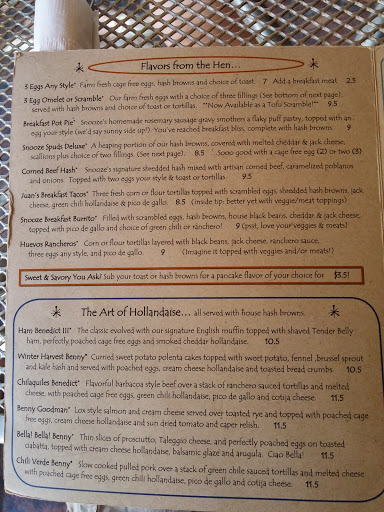 Flavors from the Hen...
3 Eggs Any Style* Farm fresh cage free eggs, hash browns and choice of toast. 7 Add a breakfast meat 2.5
3 Egg Omelet or Scramble* Our farm fresh eggs with a choice of three fillings (See bottom of next page),
served with hash browns and choice of toast or tortillas. **Now Available as a Tofu Scramble!** 9.5
Breakfast Pot Pie* Snooze's homemade rosemary sausage gravy smothers a flaky puff pastry, topped with an
egg your style (we'd say sunny side up!). You've reached breakfast bliss, complete with hash browns. 9
Snooze Spuds Deluxe* A heaping portion of our hash browns, covered with melted cheddar & jack cheese,
scallions plus choice of two fillings. (See next page). 8.5 Sooo good with a cage free egg (2) or two (3)
Corned Beef Hash* Snooze's signature shredded hash mixed with artisan corned beef, caramelized poblanos
and onions. Topped with two eggs your style & toast or tortillas 9.5
Juan's Breakfast Tacos* Three fresh corn or flour tortillas topped with scrambled eggs, shredded hash browns, jack
cheese, green chili hollandaise & pico de gallo. 8.5 (Inside tip: better yet with veggie/meat toppings)
Snooze Breakfast Burrito* Filled with scrambled eggs, hash browns, house black beans, cheddar & jack cheese,
topped with pico de gallo and choice of green chili or ranchero! 9 (psst, love your veggies & meats)
Huevos Rancheros* Corn or flour tortillas layered with black beans, jack cheese, ranchero sauce,
three eggs any style, and pico de gallo. 9 (Imagine it topped with veggies and/or meats!)
Sweet & Savory You Ask! Sub your toast or hash browns for a pancake flavor of your choice for $3.5!
The Art of Hollandaise... all served with house hash browns.
Ham Benedict III* The classic evolved with our signature English muffin topped with shaved Tender Belly
ham, perfectly poached cage free eggs and smoked cheddar hollandaise. 10.5
Winter Harvest Benny* Curried sweet potato polenta cakes topped with sweet potato, fennel ,brussel sprout
and kale hash and served with poached eggs, cream cheese hollandaise and toasted bread crumbs. 10.5
Chilaquiles Benedict* Flavorful barbacoa style beef over a stack of ranchero sauced tortillas and melted
cheese, with poached cage free eggs, green chili hollandaise, pico de gallo and cotija cheese. 11.5
Benny Goodman* Lox style salmon and cream cheese served over toasted rye and topped with poached cage
free eggs, cream cheese hollandaise and sun dried tomato and caper relish. 11.5
Bella! Bella! Benny* Thin slices of prosciutto, Taleggio cheese, and perfectly poached eggs on toasted
ciabatta, topped with cream cheese hollandaise, balsamic glaze and arugula. Ciao Bella! 11.5
Chili Verde Benny* Slow cooked pulled pork over a stack of green chile sauced tortillas and melted cheese
with poached cage free eggs, green chili hollandaise, pico de gallo and cotija cheese. 11.5